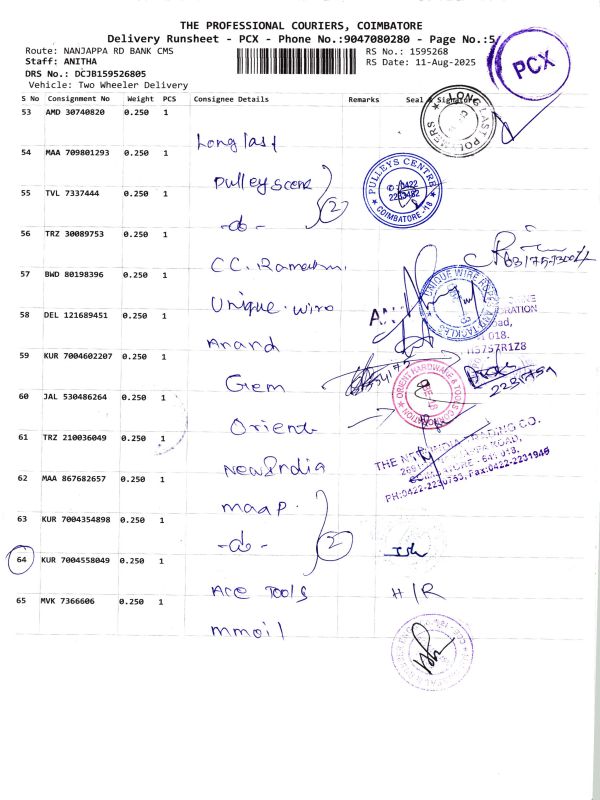 THE PROFESSIONAL COURIERS, COIMBATORE
Delivery Runsheet - PCX - Phone No.:9047080280 - Page No.:5/
Route: NANJAPPA RD BANK CMS
RS No.: 1595268
Staff: ANITHA
RS Date: 11-Aug-2025
DRS No.: DCJB159526805
Vehicle: Two Wheeler Delivery
PCX
S No Consignment No Weight PCS Consignee Details Remarks Seal & Signature
53 AMD 30740820 0.250 1 Longlast
LONG LAST POLYMERS
54 MAA 709801293 0.250 1 Pulleyscene
PULLEYS CENTRE
0422
COIMBATORE -18
2
55 TVL 7337444 0.250 1 -do-
56 TRZ 30089753 0.250 1 CC.
57 BWD 80198396 0.250 1 Unique.wire
UNIQUE WIRE ROPES AND TACKLES
58 DEL 121689451 0.250 1 Anand
59 KUR 7004602207 0.250 1 Gem
60 JAL 530486264 0.250 1 Orient
ORIENT HARDWARE & TOOLS CORPORATION
61 TRZ 210036049 0.250 1 New India
THE NEW INDIA TRADING CO.
PH:0422-2230753, Fax:0422-2231949
62 MAA 867682657 0.250 1 maap.
63 KUR 7004354898 0.250 1 -do-
2
64 KUR 7004558049 0.250 1 Ace Tools H/R
65 MVK 7366606 0.250 1 mmoil